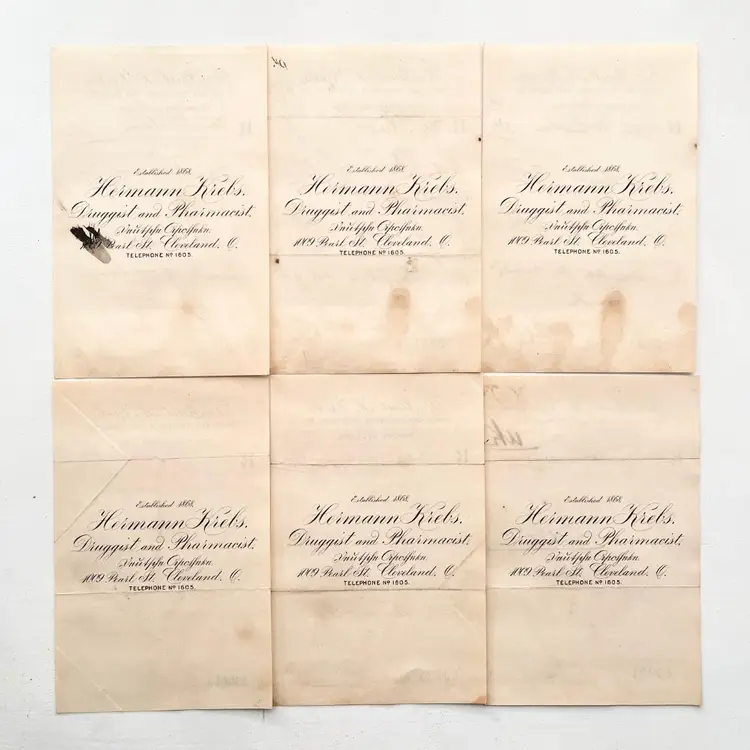 Established 1868.
Hermann Krebs,
Druggist and Pharmacist,
Deutsche Apotheke.
Pearl St. Cleveland, O.
TELEPHONE Nº 1605.
Established 1868.
Hermann Krebs,
Druggist and Pharmacist,
Deutsche Apotheke.
1009 Pearl St. Cleveland, O.
TELEPHONE Nº 1605.
Established 1868.
Hermann Krebs,
Druggist and Pharmacist,
Deutsche Apotheke.
1009 Pearl St. Cleveland, O.
TELEPHONE Nº 1605.
Established 1868.
Hermann Krebs,
Druggist and Pharmacist,
Deutsche Apotheke.
1009 Pearl St. Cleveland, O.
TELEPHONE Nº 1605.
Established 1868.
Hermann Krebs,
Druggist and Pharmacist,
Deutsche Apotheke.
1009 Pearl St. Cleveland, O.
TELEPHONE Nº 1605.
Established 1868.
Hermann Krebs,
Druggist and Pharmacist,
Deutsche Apotheke.
1009 Pearl St. Cleveland, O.
TELEPHONE Nº 1605.